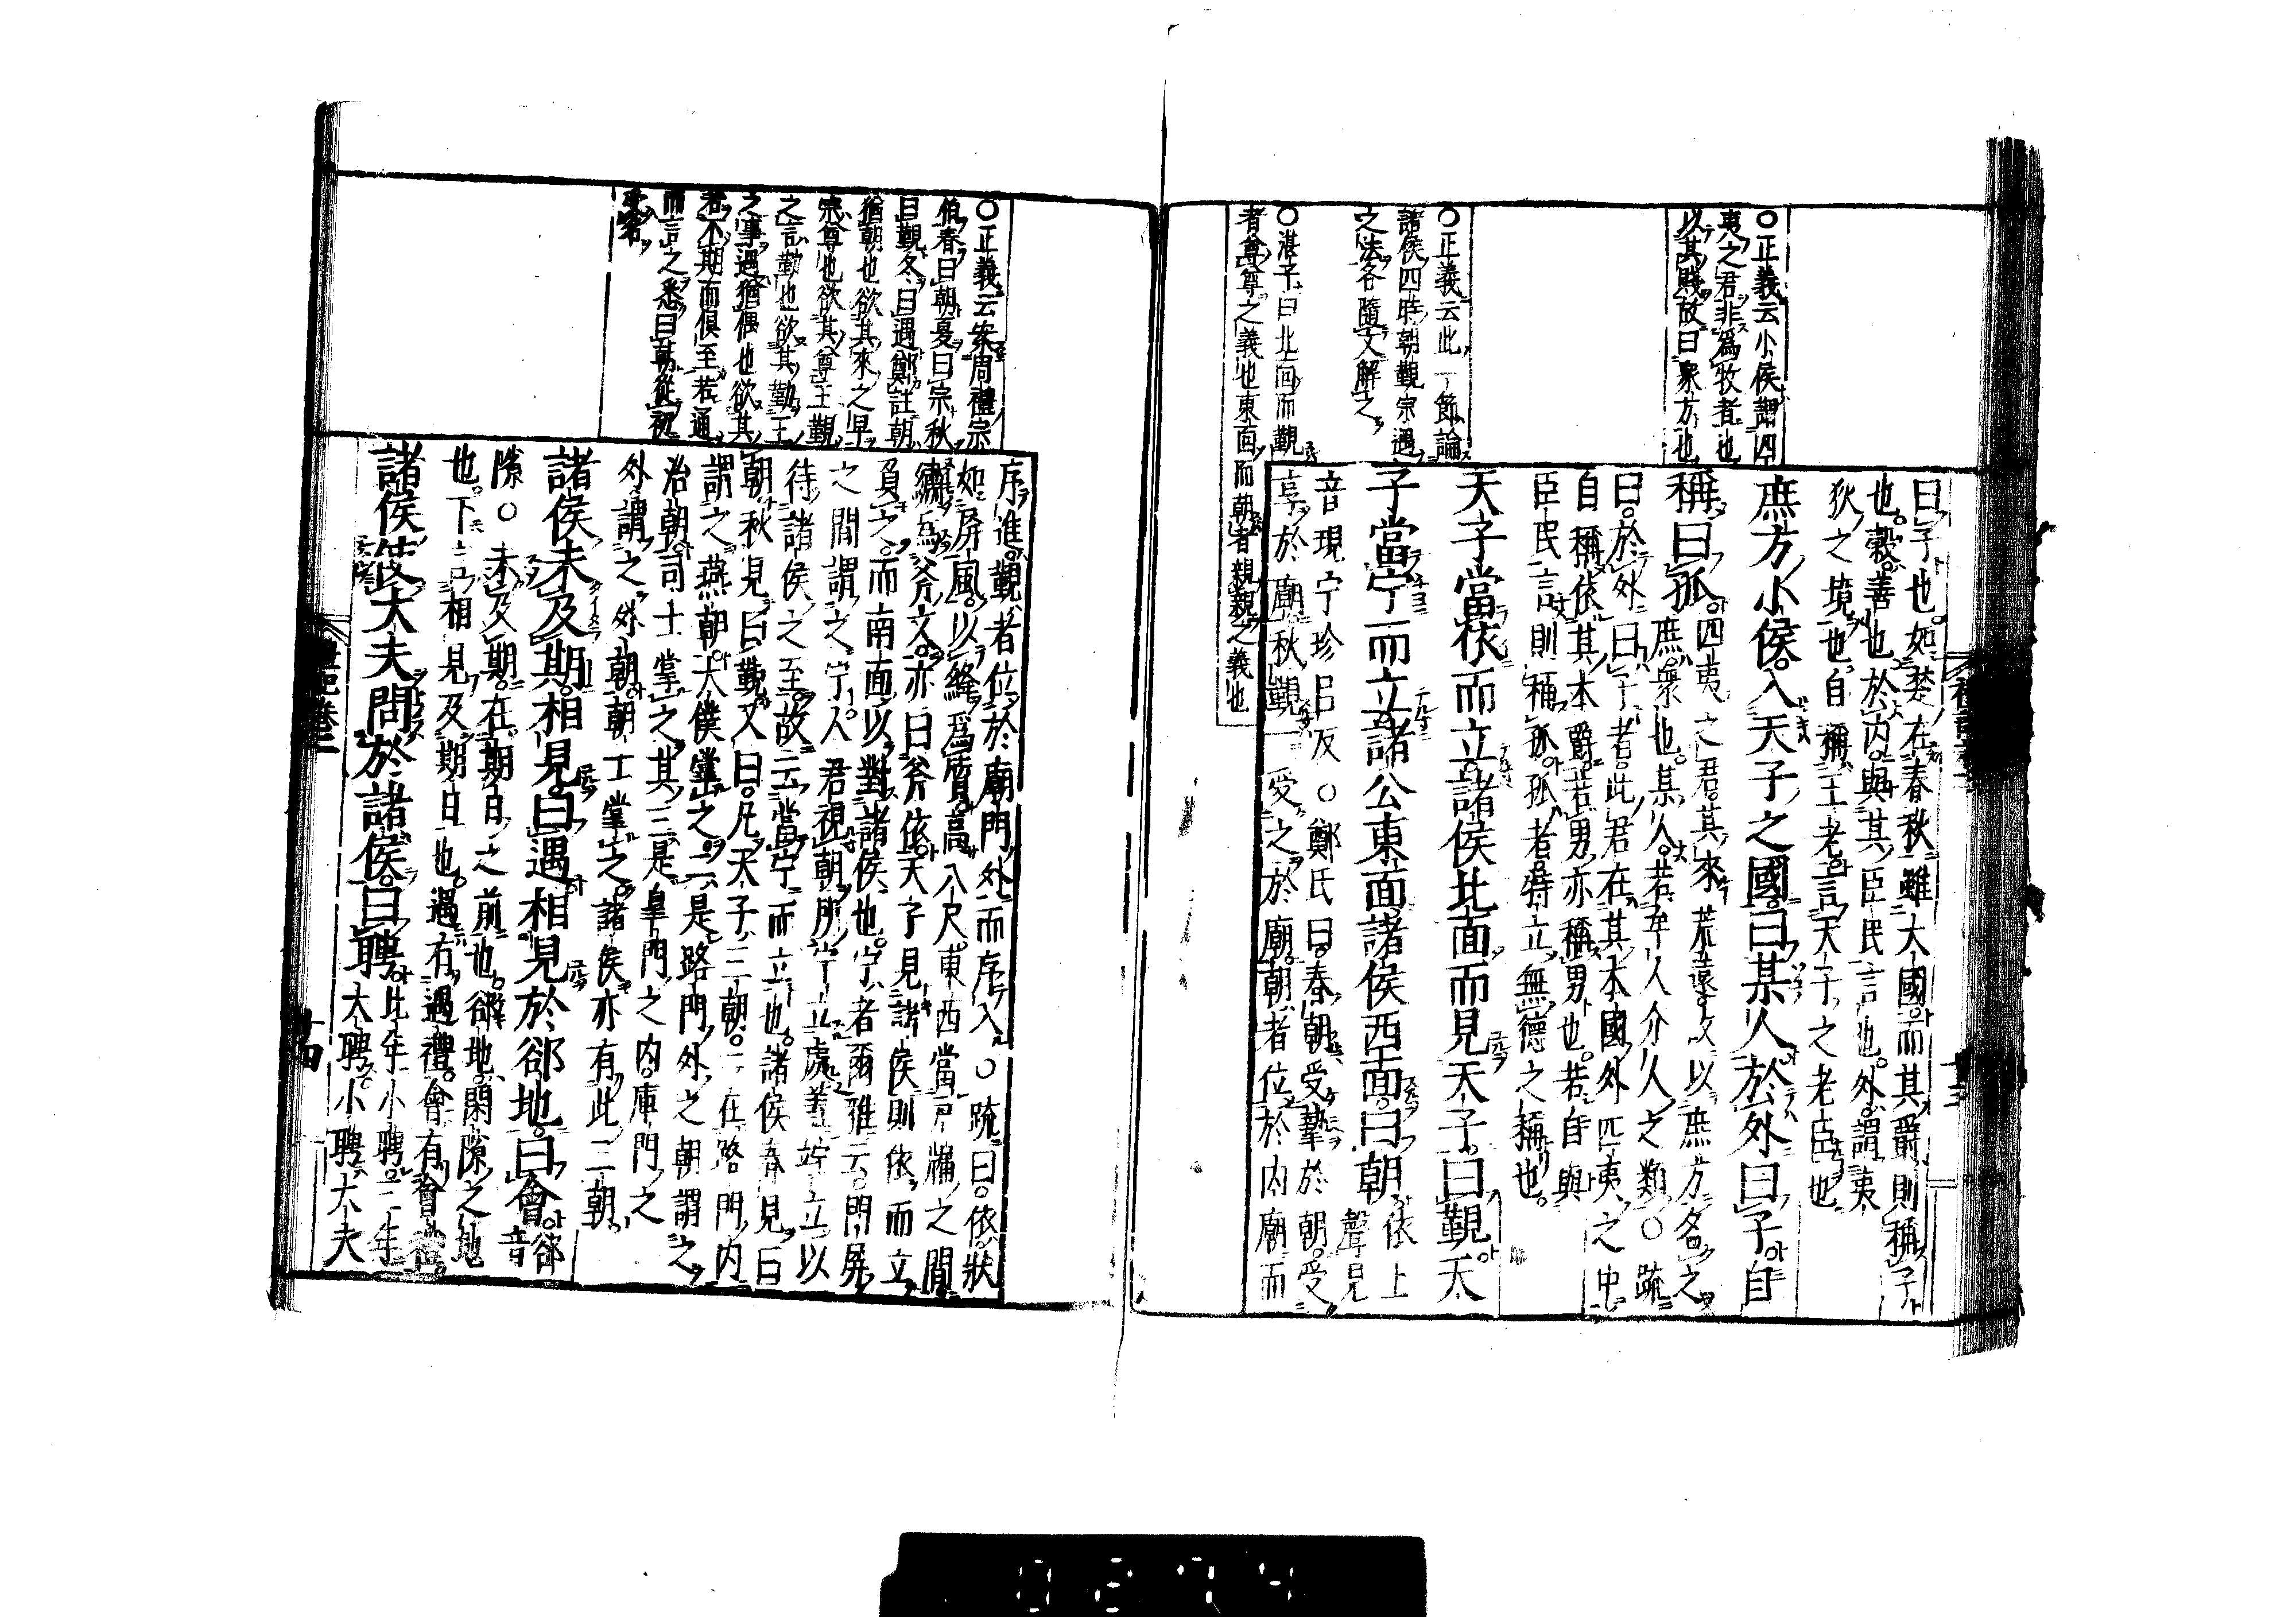 ○正義云小侯謂四
夷之君非爲牧者也
以其賤故曰衆方也
○正義云此一節論
諸侯四時朝覲宗遇
之法各隨文解之
○湛子曰北面而覲
者尊尊之義也東面而朝者親親之義也
曰子也如楚在春秋雖大國而其爵則稱子
也穀善也於內與其臣民言也外謂夷
狄之境也自稱王老言天子之老臣也
庶方小侯入天子之國曰某人於外曰子自
稱曰孤四夷之君其來荒遠故以庶方名之
庶衆也某人若牟人介人之類○疏
曰於外曰子者此君在其本國外四夷之中
自稱依其本爵若男亦稱男也若自與
臣民言則稱孤孤者特立無德之稱也
天子當依而立諸侯北面而見天子曰覲天
子當宁而立諸公東面諸侯西面曰朝依上
聲見
音現宁珍呂反○鄭氏曰春朝受摯於朝受
享於廟秋覲一受之於廟朝者位於內廟而
○正義云案周禮宗
伯春曰朝夏曰宗秋
曰覲冬曰遇鄭註朝
猶朝也欲其來之早
宗尊也欲其尊王覲
之言勤也欲其勤王
之事遇猶偶也欲其
若不期而俱至若通
而言之悉曰朝從初
受名
序進覲者位於廟門外而序入○疏曰依狀
如屛風以絳爲質高八尺東西當戶牖之間
繡爲斧文亦曰斧依天子見諸侯則依而立
負之而南面以對諸侯也宁者爾雅云門屛
之間謂之宁人君視朝所宁立處蓋竚立以
待諸侯之至故云當宁而立也諸侯春見曰
朝秋見曰覲又曰凡天子三朝一在路門內
謂之燕朝大僕掌之二是路門外之朝謂之
治朝司士掌之其三是皐門之內庫門之
外謂之外朝朝士掌之諸侯亦有此三朝
諸侯未及期相見曰遇相見於郤地曰會郤
音
隙○未及期在期日之前也郤地閑隙之地
也下言相見及期日也遇有遇禮會有會禮
諸侯使大夫問於諸侯曰聘比年小聘三年
大聘小聘大夫